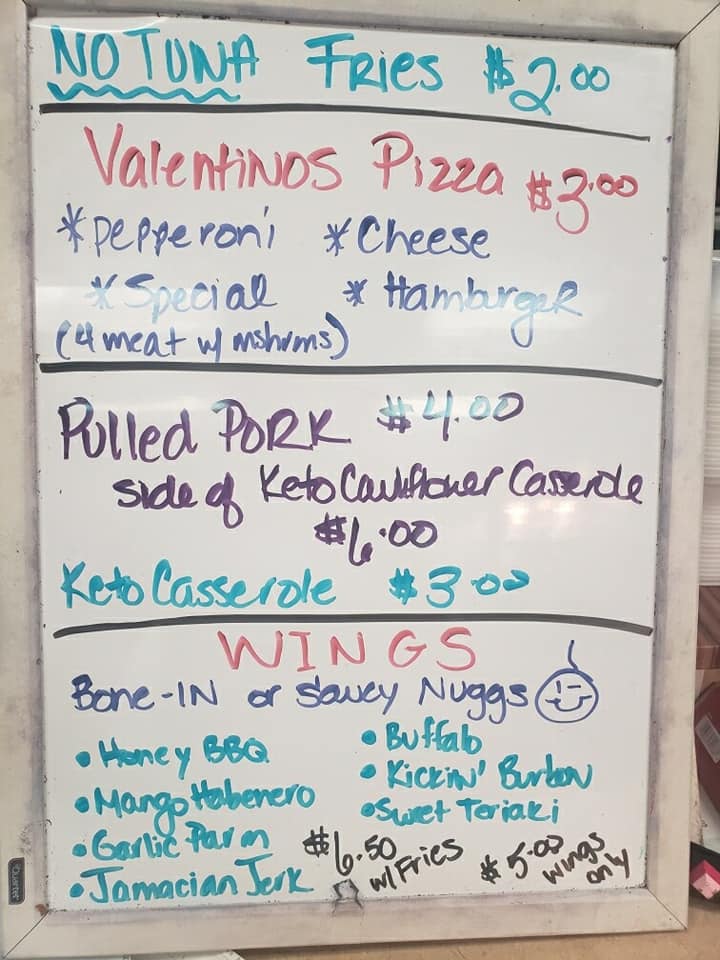 NO TUNA Fries $2.00
Valentinos Pizza $3.00
*Pepperoni *Cheese
*Special *Hamburger
(4 meat w/ mshrms)
Pulled Pork $4.00
side of Keto Cauliflower Casserole
$6.00
Keto Casserole $3.00
WINGS
Bone-IN or Saucy Nuggs
•Honey BBQ
•Mango Habenero
•Garlic Parm
•Jamacian Jerk
•Buffalo
•Kickin' Burbon
•Sweet Teriaki
$6.50 w/ Fries
$5.00 wings only
Quartet